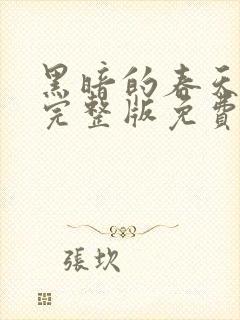 黑暗的春天
完整版免費
張坎